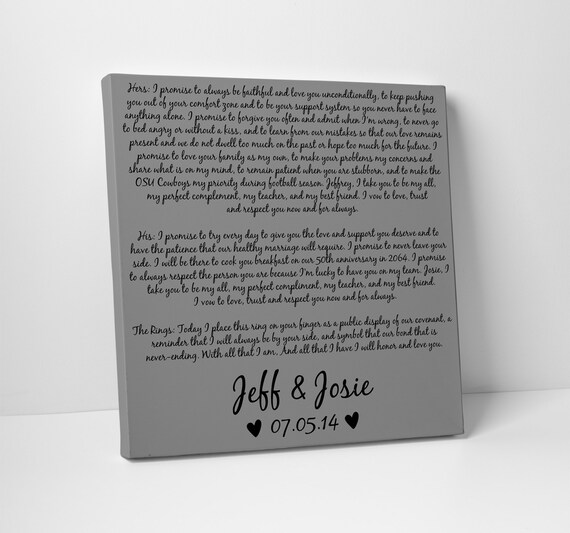 Hers: I promise to always be faithful and love you unconditionally, to keep pushing
you out of your comfort zone and to be your support system so you never have to face
anything alone. I promise to forgive you often and admit when I'm wrong, to never go
to bed angry or without a kiss, and to learn from our mistakes so that our love remains
present and we do not dwell too much on the past or hope too much for the future. I
promise to love your family as my own, to make your problems my concerns and
share what is on my mind, to remain patient when you are stubborn, and to make the
OSU Cowboys my priority during football season. Jeffrey, I take you to be my all,
my perfect complement, my teacher, and my best friend. I vow to love, trust
and respect you now and for always.
His: I promise to try every day to give you the love and support you deserve and to
have the patience that our healthy marriage will require. I promise to never leave your
side. I will be there to cook you breakfast on our 50th anniversary in 2064. I promise
to always respect the person you are because I'm lucky to have you on my team. Josie, I
take you to be my all, my perfect compliment, my teacher, and my best friend.
I vow to love, trust and respect you now and for always.
The Rings: Today I place this ring on your finger as a public display of our covenant, a
reminder that I will always be by your side, and symbol that our bond that is
never-ending. With all that I am, And all that I have I will honor and love you.
Jeff & Josie
07.05.14